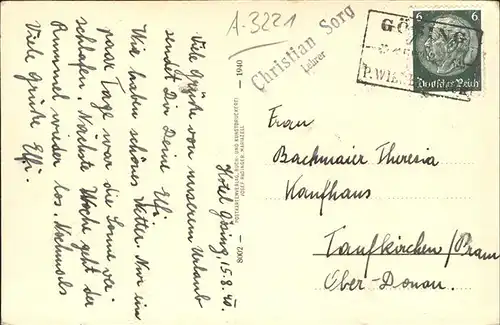 A-3221
Christian Sorg
Lehrer
GÖSING
P. WIEN
6 6
Deutsches Reich
Hotel Gösing, 15.8.40.
Viele Grüße von unserem Urlaub
sendet Dir Deine Elfi.
Wir haben schönes Wetter. Nur ein
paar Tage war die Sonne ver-
schlafen. Nächste Woche geht der
Rummel wieder los. Nochmals
Viele Grüße Elfi.
8002 — 1940
POSTKARTENVERLAG, BUCH- UND KUNSTDRUCKEREI
JOSEF RADINGER, MARIAZELL
Frau
Bachmaier Theresia
Kaufhaus
Taufkirchen/Pram
Ober-Donau.